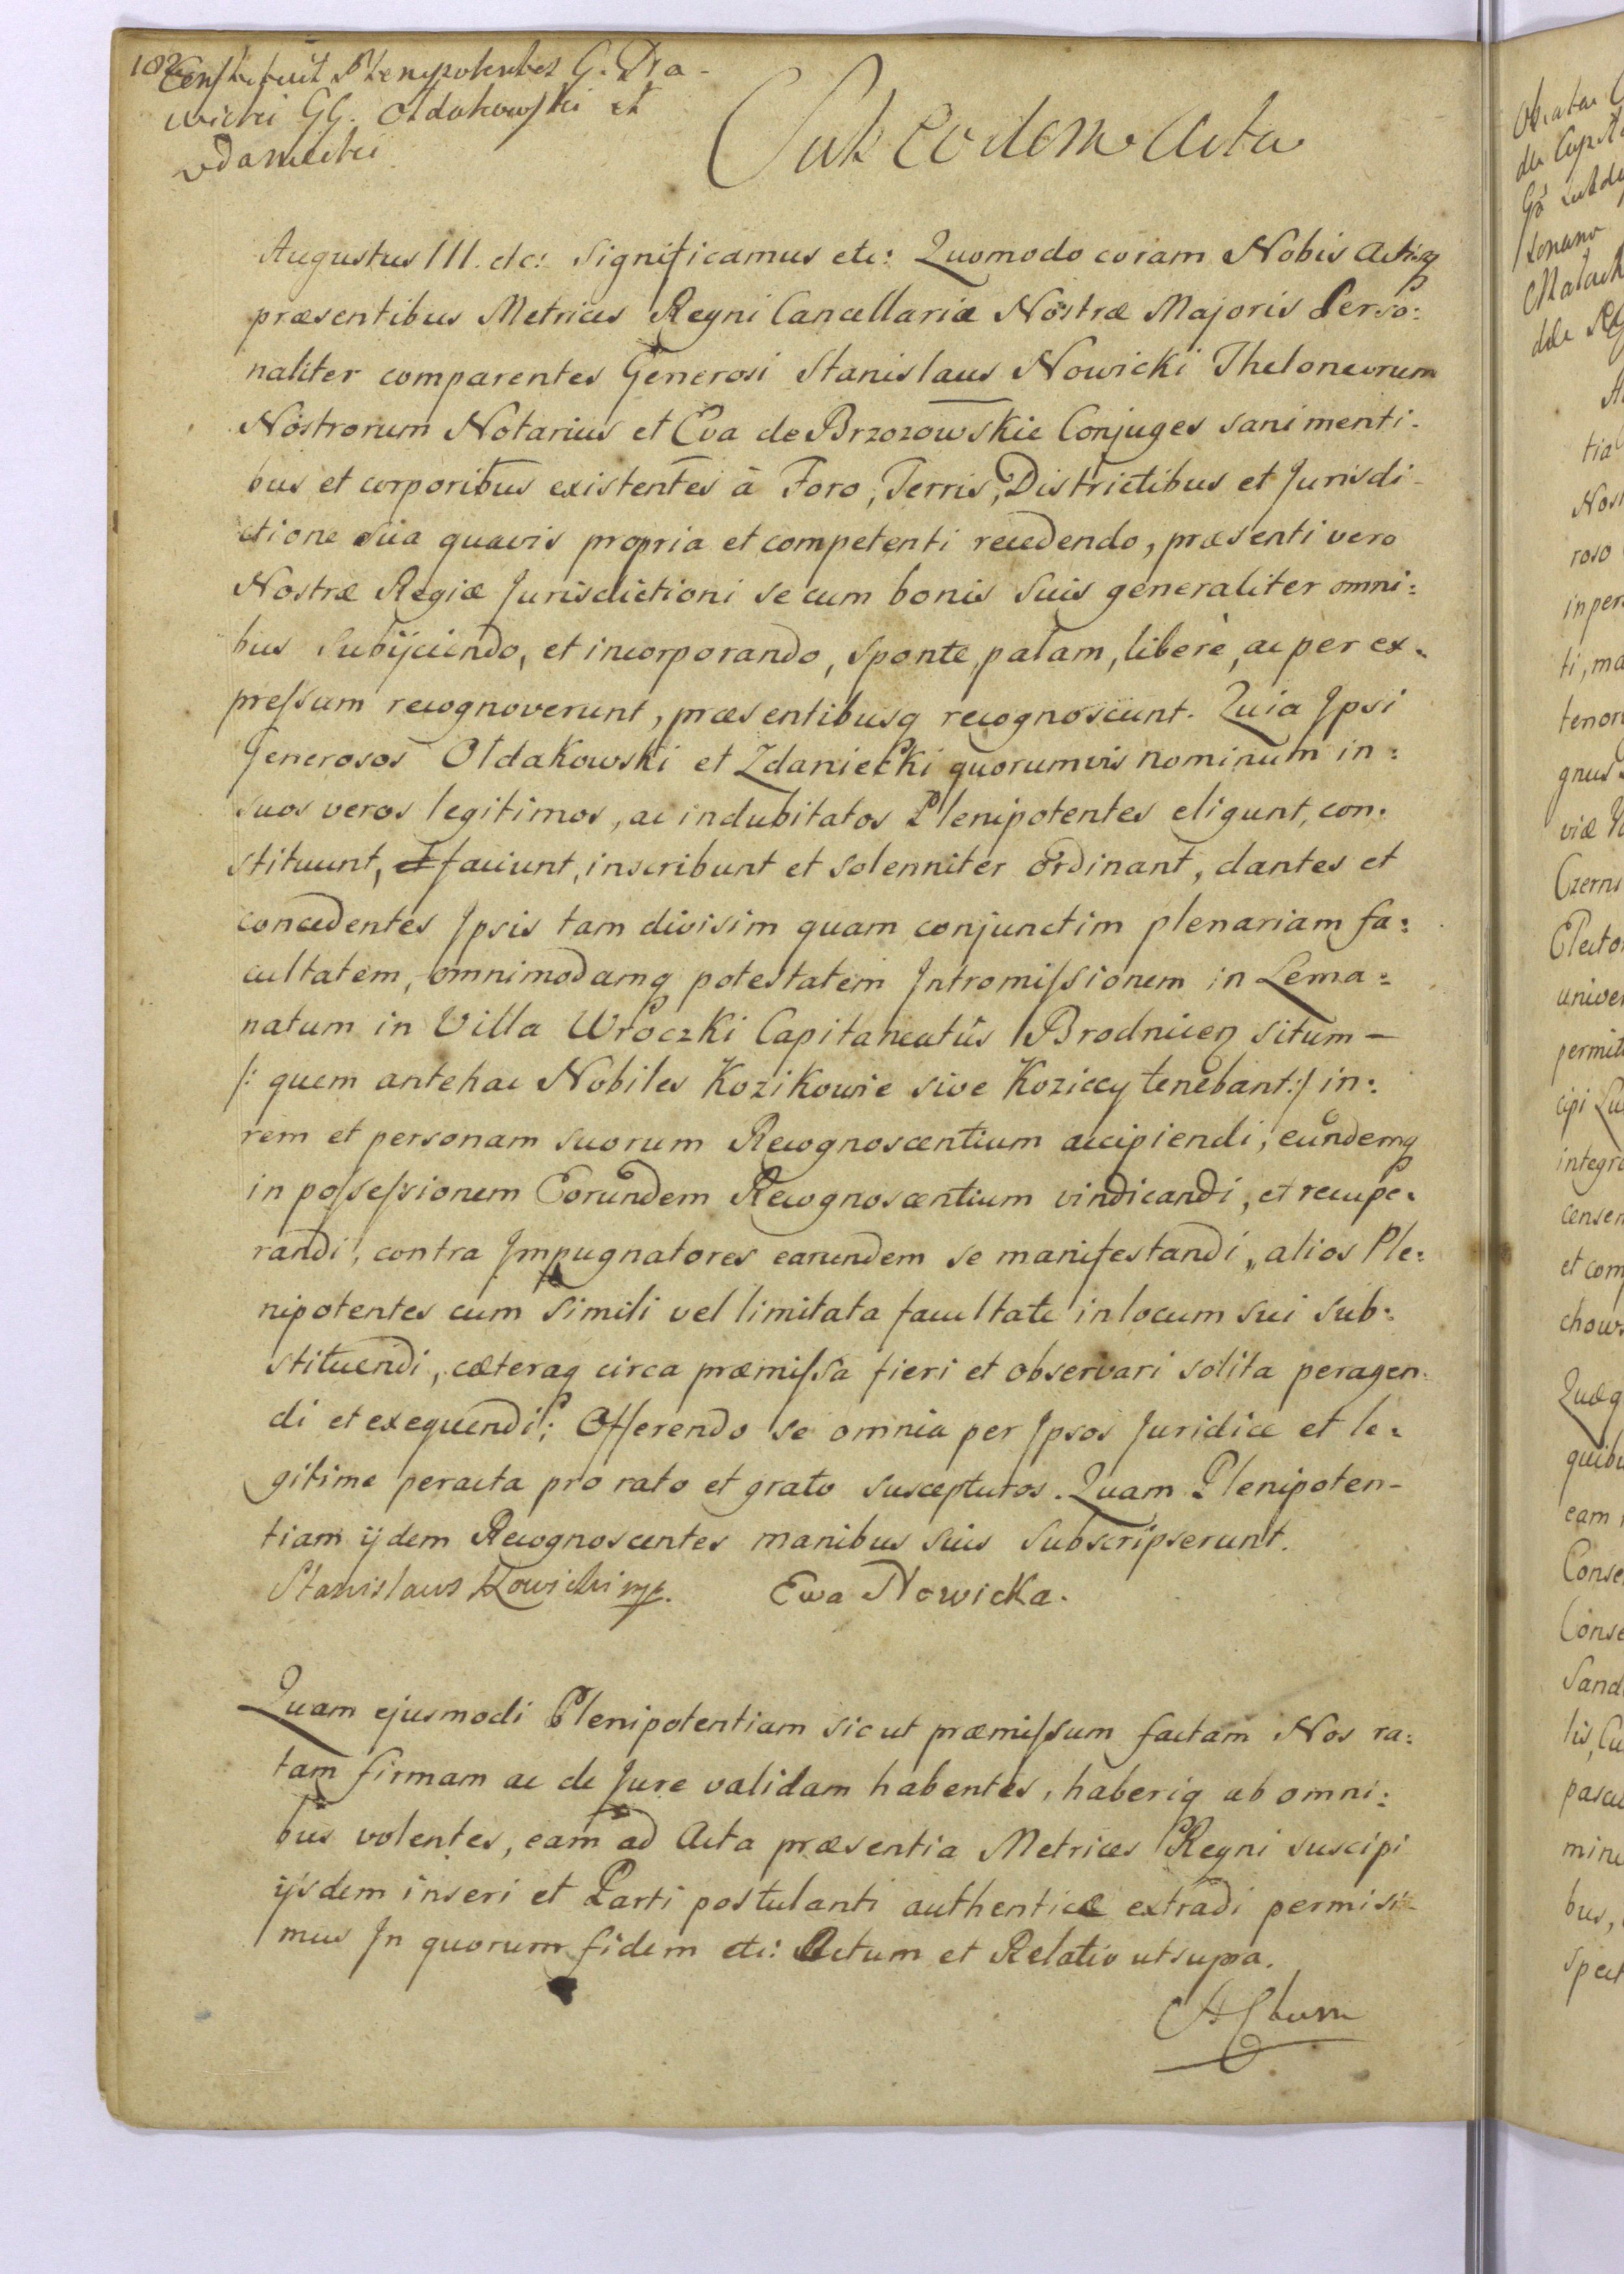 182
Constituit Plenipotentes G.
wicki GG. Oldakowski et
Zdaniecki
Sub eodem Actu
Augustus III. etc: Significamus etc: Quomodo coram Nobis Actisq
præsentibus Metrices Regni Cancellariæ Nostræ Majoris Perso:
naliter comparentes Generosi Stanislaus Nowicki Theloneorum
Nostrorum Notarius et Eva de Brzozowskie Conjuges sani menti-
bus et corporibus existentes à Foro, Terris, Districtibus et Jurisdi-
ctione sua quavis propria et competenti recedendo, præsenti vero
Nostræ Regiæ Jurisdictioni se cum bonis suis generaliter omni:
bus Subijciendo, et incorporando, sponte, palam, liberè, ac per ex-
preſsum recognoverunt, præsentibusq recognoscunt. Quia Ipsi
Generosos Oldakowski et Zdaniecki quorumvis nominum in:
suos veros legitimos, ac indubitatos Plenipotentes eligunt, con:
stituunt, et faciunt, inscribunt et solenniter ordinant, dantes et
concedentes Ipsis tam divisim quam conjunctim plenariam fa:
cultatem, omnimodamq potestatem Intromiſsionem in Lema:
natum in Villa Wroczki Capitaneatûs Brodnicen situm —
/: quem antehac Nobiles Kozikowie sive Koziccy tenebant :/ in:
rem et personam suorum Recognoscentium accipiendi, eundemq
in poſseſsionem Eorundem Recognoscentium vindicandi, et recupe:
randi, contra Impugnatores earundem se manifestandi, alios Ple:
nipotentes cum simili vel limitata facultate in locum sui sub:
stituendi, cæteraq circa præmiſsa fieri et observari solita peragen:
di et exequendi; Offerendo se omnia per Ipsos Juridice et le:
gitime peracta pro rato et grato suscepturos. Quam Plenipoten-
tiam ijdem Recognoscentes manibus suis subscripserunt.
Stanislaus Nowicki mp. Ewa Nowicka.
Quam ejusmodi Plenipotentiam sicut præmiſsum factam Nos ra:
tam firmam ac de Jure validam habentes, haberiq ab omni:
bus volentes, eam ad Acta præsentia Metrices Regni suscipi
ijsdem inseri et Parti postulanti authenticæ extradi permisi-
mus In quorum fidem etc: Actum et Relatio ut supra.